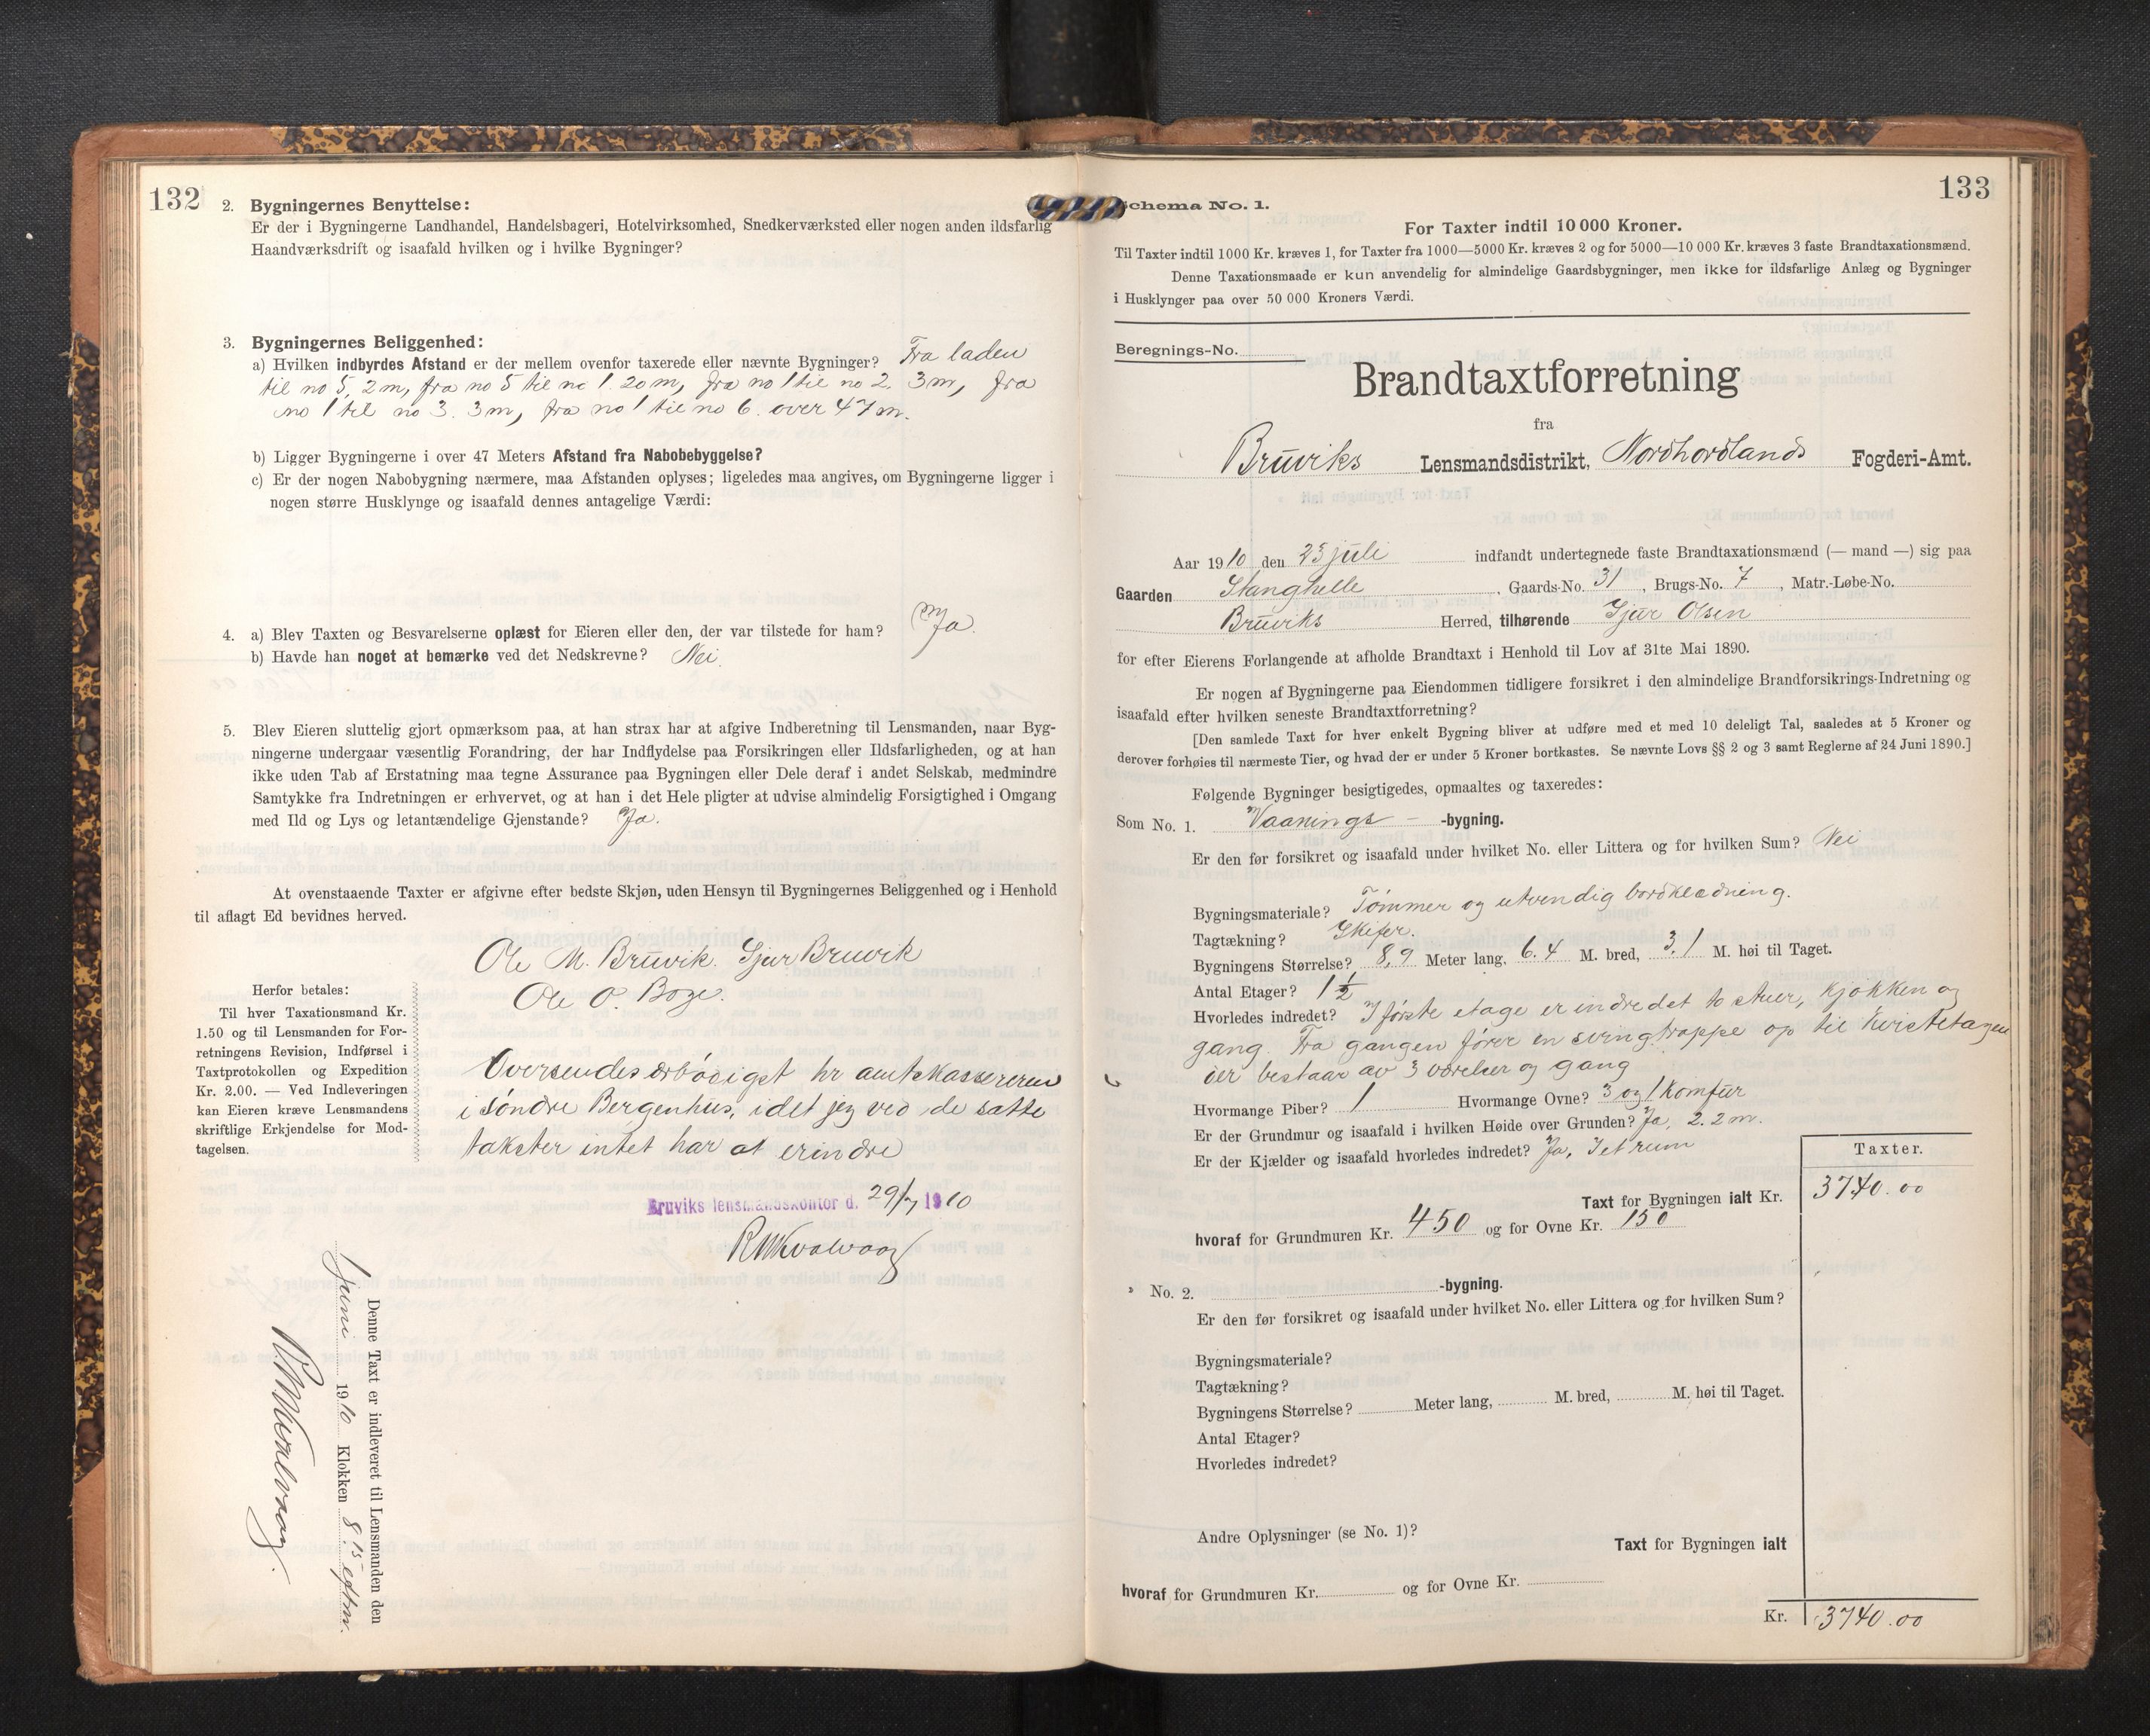 132
2. Bygningernes Benyttelse:
Er der i Bygningerne Landhandel, Handelsbageri, Hotelvirksomhed, Snedkerværksted eller nogen anden ildsfarlig
Haandværksdrift og isaafald hvilken og i hvilke Bygninger?
3. Bygningernes Beliggenhed:
a) Hvilken indbyrdes Afstand er der mellem ovenfor taxerede eller nævnte Bygninger? Fra laden
til no 5, 2 m, fra no 5 til no 1. 20 m, fra no 1 til no 2. 3 m, fra
no 1 til no 3. 3 m, fra no 1 til no 6. over 47 m.
b) Ligger Bygningerne i over 47 Meters Afstand fra Nabobebyggelse?
c) Er der nogen Nabobygning nærmere, maa Afstanden oplyses; ligeledes maa angives, om Bygningerne ligger i
nogen større Husklynge og isaafald dennes antagelige Værdi:
4. a) Blev Taxten og Besvarelserne oplæst for Eieren eller den, der var tilstede for ham? Ja.
b) Havde han noget at bemærke ved det Nedskrevne? Nei
5. Blev Eieren sluttelig gjort opmærksom paa, at han strax har at afgive Indberetning til Lensmanden, naar Byg-
ningerne undergaar væsentlig Forandring, der har Indflydelse paa Forsikringen eller Ildsfarligheden, og at han
ikke uden Tab af Erstatning maa tegne Assurance paa Bygningen eller Dele deraf i andet Selskab, medmindre
Samtykke fra Indretningen er erhvervet, og at han i det Hele pligter at udvise almindelig Forsigtighed i Omgang
med Ild og Lys og letantændelige Gjenstande? Ja.
At ovenstaaende Taxter er afgivne efter bedste Skjøn, uden Hensyn til Bygningernes Beliggenhed og i Henhold
til aflagt Ed bevidnes herved.
Ole M. Bruvik. Sjur Bruvik
Ole O. Boge.
Herfor betales:
Til hver Taxationsmand Kr.
1.50 og til Lensmanden for For-
retningens Revision, Indførsel i
Taxtprotokollen og Expedition
Kr. 2.00. — Ved Indleveringen
kan Eieren kræve Lensmandens
skriftlige Erkjendelse for Mod-
tagelsen.
Oversendes ærbødigst hr amtskassereren
i Søndre Bergenhus, idet jeg ved de satte
takster intet har at erindre
Bruviks lensmandskontor d. 29/7 1910
Denne Taxt er indleveret til Lensmanden den
juni 1910 Klokken 8 15 eftm.
133
Schema No. 1.
For Taxter indtil 10 000 Kroner.
Til Taxter indtil 1000 Kr. kræves 1, for Taxter fra 1000—5000 Kr. kræves 2 og for 5000—10 000 Kr. kræves 3 faste Brandtaxationsmænd.
Denne Taxationsmaade er kun anvendelig for almindelige Gaardsbygninger, men ikke for ildsfarlige Anlæg og Bygninger
i Husklynger paa over 50 000 Kroners Værdi.
Beregnings-No.
Brandtaxtforretning
fra
Bruviks Lensmandsdistrikt, Nordhordlands Fogderi-Amt.
Aar 1910 den 23 juli indfandt undertegnede faste Brandtaxationsmænd (— mand —) sig paa
Gaarden Stanghelle, Gaards-No. 31, Brugs-No. 7, Matr.-Løbe-No.
Bruviks Herred, tilhørende Sjur Olsen
for efter Eierens Forlangende at afholde Brandtaxt i Henhold til Lov af 31te Mai 1890.
Er nogen af Bygningerne paa Eiendommen tidligere forsikret i den almindelige Brandforsikrings-Indretning og
isaafald efter hvilken seneste Brandtaxtforretning?
[Den samlede Taxt for hver enkelt Bygning bliver at udføre med et med 10 deleligt Tal, saaledes at 5 Kroner og
derover forhøies til nærmeste Tier, og hvad der er under 5 Kroner bortkastes. Se nævnte Lovs §§ 2 og 3 samt Reglerne af 24 Juni 1890.]
Følgende Bygninger besigtigedes, opmaaltes og taxeredes:
Som No. 1. Vaanings -bygning.
Er den før forsikret og isaafald under hvilket No. eller Littera og for hvilken Sum? Nei
Bygningsmateriale? Tømmer og utvendig bordklædning.
Tagtækning? Skifer.
Bygningens Størrelse? 8,9 Meter lang, 6.4 M. bred, 3,1 M. høi til Taget.
Antal Etager? 1 1/2
Hvorledes indredet? I første etage er indredet to stuer, kjøkken og
gang. Fra gangen fører en svingtrappe op til kvistetagen
der bestaar av 3 værelser og gang
Hvormange Piber? 1 Hvormange Ovne? 3 og 1 komfur
Er der Grundmur og isaafald i hvilken Høide over Grunden? Ja, 2.2 m.
Er der Kjælder og isaafald hvorledes indredet? Ja, I et rum
Taxter.
Taxt for Bygningen ialt Kr. 3740.00
hvoraf for Grundmuren Kr. 450 og for Ovne Kr. 150
" No. 2. -bygning.
Er den før forsikret og isaafald under hvilket No. eller Littera og for hvilken Sum?
Bygningsmateriale?
Tagtækning?
Bygningens Størrelse? Meter lang, M. bred, M. høi til Taget.
Antal Etager?
Hvorledes indredet?
Andre Oplysninger (se No. 1)?
Taxt for Bygningen ialt
hvoraf for Grundmuren Kr. og for Ovne Kr.
Kr. 3740.00